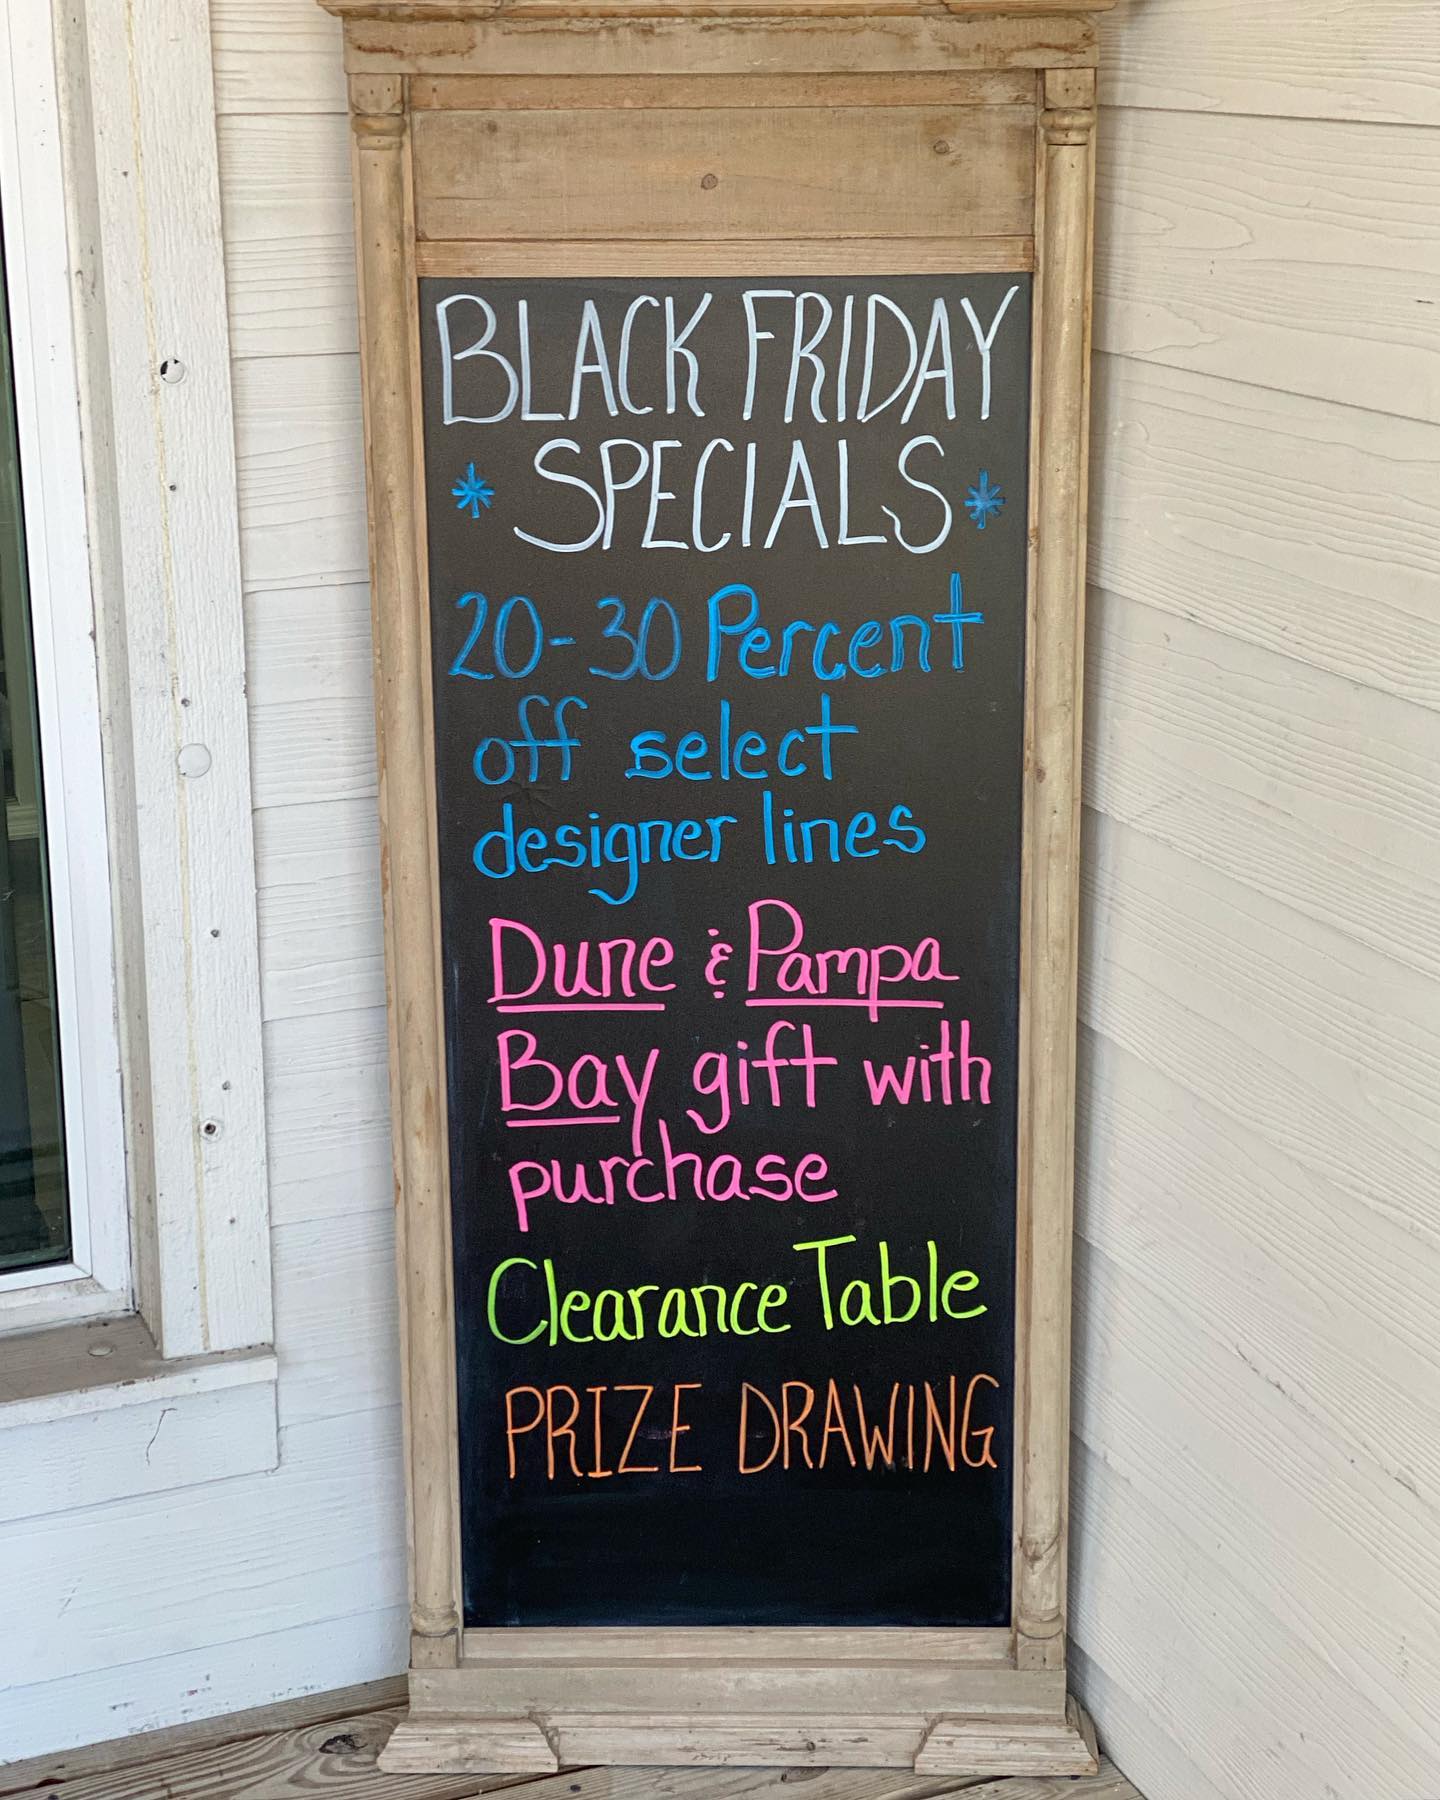 BLACK FRIDAY
* SPECIALS *
20-30 Percent
off select
designer lines
Dune & Pampa
Bay gift with
purchase
Clearance Table
PRIZE DRAWING